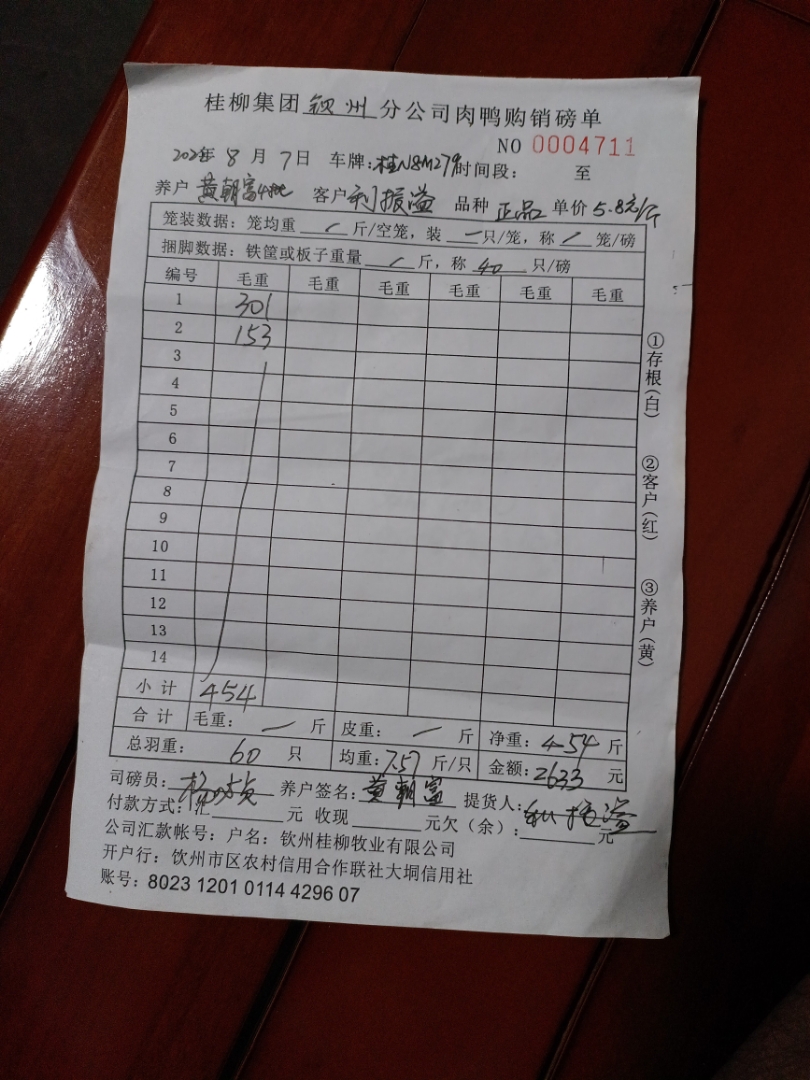 桂柳集团钦州分公司肉鸭购销磅单
NO 0004711
8月7日 车牌:桂N8M279 时间段: 至
养户 黄朝富4批 客户 利振溢 品种 正品 单价 5.8元/斤
笼装数据:笼均重 / 斤/空笼,装 一 只/笼,称 / 笼/磅
捆脚数据:铁筐或板子重量 / 斤,称 40 只/磅
编号 毛重 毛重 毛重 毛重 毛重 毛重
1 301
2 153
3
4
5
6
7
8
9
10
11
12
13
14
小计 454
合计 毛重: 一 斤 皮重: 一 斤 净重: 454 斤
总羽重: 60 只 均重: 7.57 斤/只 金额: 2633 元
司磅员: 养户签名: 黄朝富 提货人: 利振溢
付款方式:汇 元 收现 元欠(余): 元
公司汇款帐号:户名:钦州桂柳牧业有限公司
开户行:钦州市区农村信用合作联社大垌信用社
账号:8023 1201 0114 4296 07
①存根(白)
②客户(红)
③养户(黄)